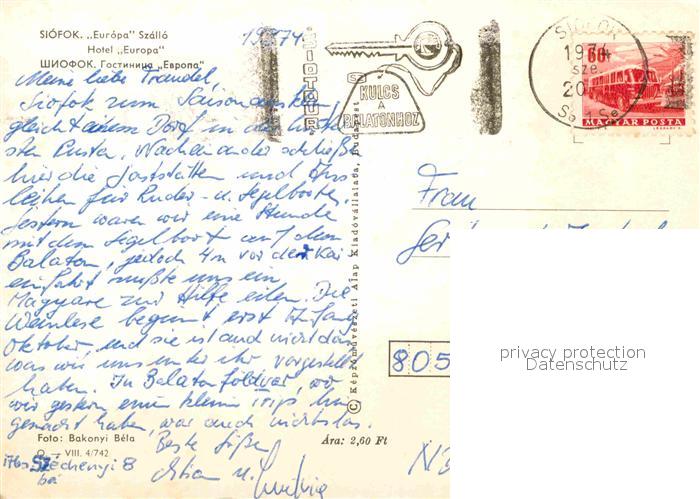 SIÓFOK. „Európa" Szálló
Hotel „Europa"
ШИОФОК. Гостиница „Европа"
Meine liebe Traudel,
Siofok zum Saisonausklang
gleicht einem Dorf in der
sten Pusta. Nacheinander schließen
hier die Gaststätten und Aus
leihen für Ruder- u. Segelboote.
Gestern waren wir eine Stunde
mit dem Segelboot auf dem
Balaton, jedoch 4 m vor der Kai
einfahrt mußte uns ein
Magyare zur Hilfe eilen. Die
Weinlese beginnt erst Anfang
Oktober, und sie ist auch nicht das
was wir uns unter ihr vorgestellt
haben. In Balatonföldvar, wo
wir gestern einen kleinen Trip hin
gemacht haben, war auch nichts los.
Beste Grüße
u.
Foto: Bakonyi Béla
VIII. 4/742
Széchenyi 8
© Képzőművészeti Alap Kiadóvállalata, Budapest
Ára: 2,60 Ft
SIOTOUR
KULCS
A
BALATONHOZ
SIÓFOK
1974
sze
20
60f
MAGYAR POSTA
Frau
805
privacy protection
Datenschutz